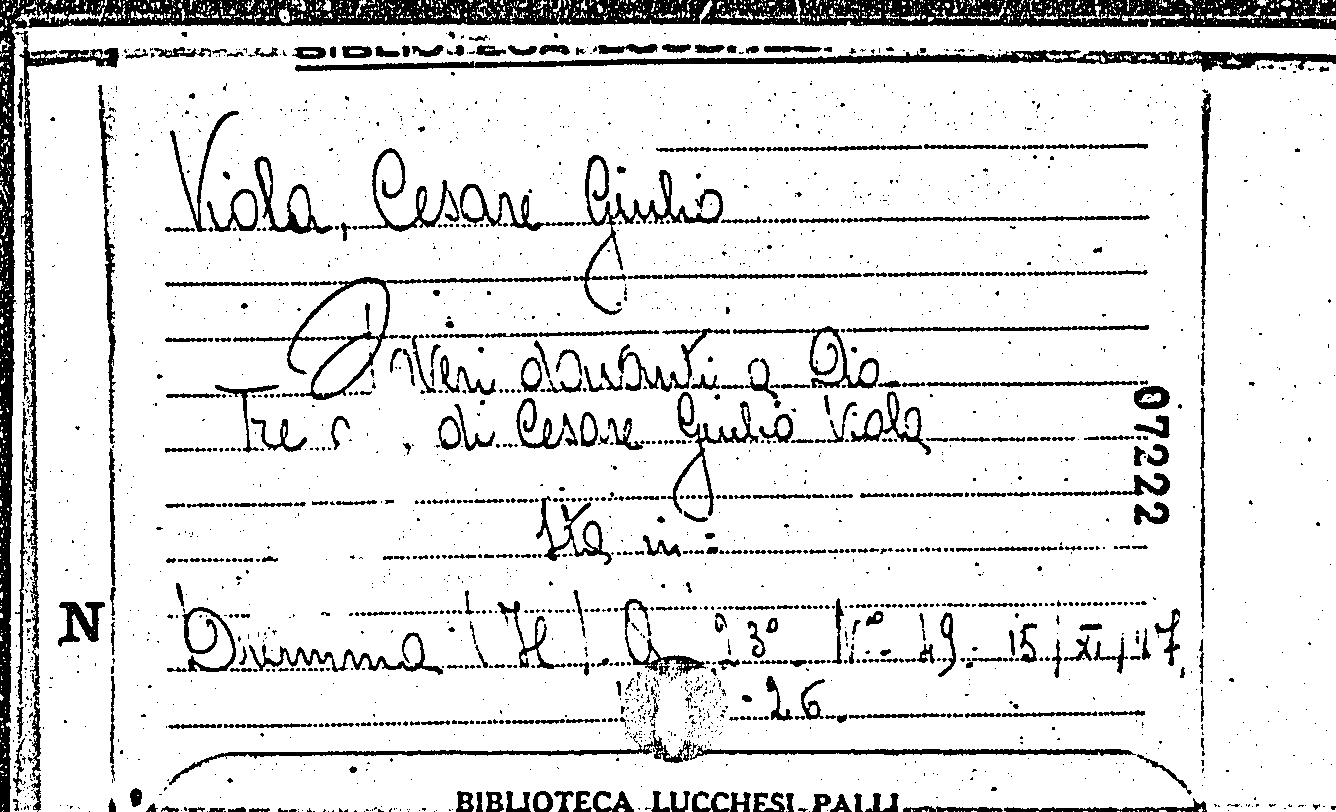 Viola, Cesare Giulio
Inveri davanti a Dio.
Tre , di Cesare Giulio Viola
Sta in:
Dramma (Il). A. 23°. N°. 49. 15/XI/47,
-26.
07222
N
BIBLIOTECA LUCCHESI-PALLI